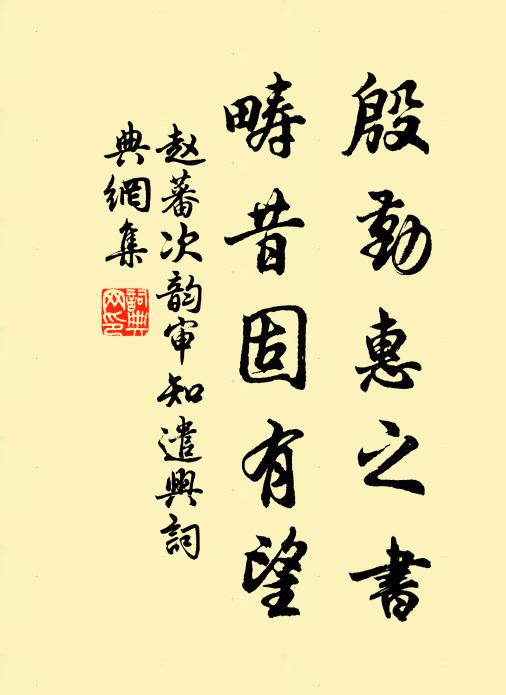 殷勤惠之書
疇昔固有望
赵蕃次韵审知遣興詞
典網集
詞典